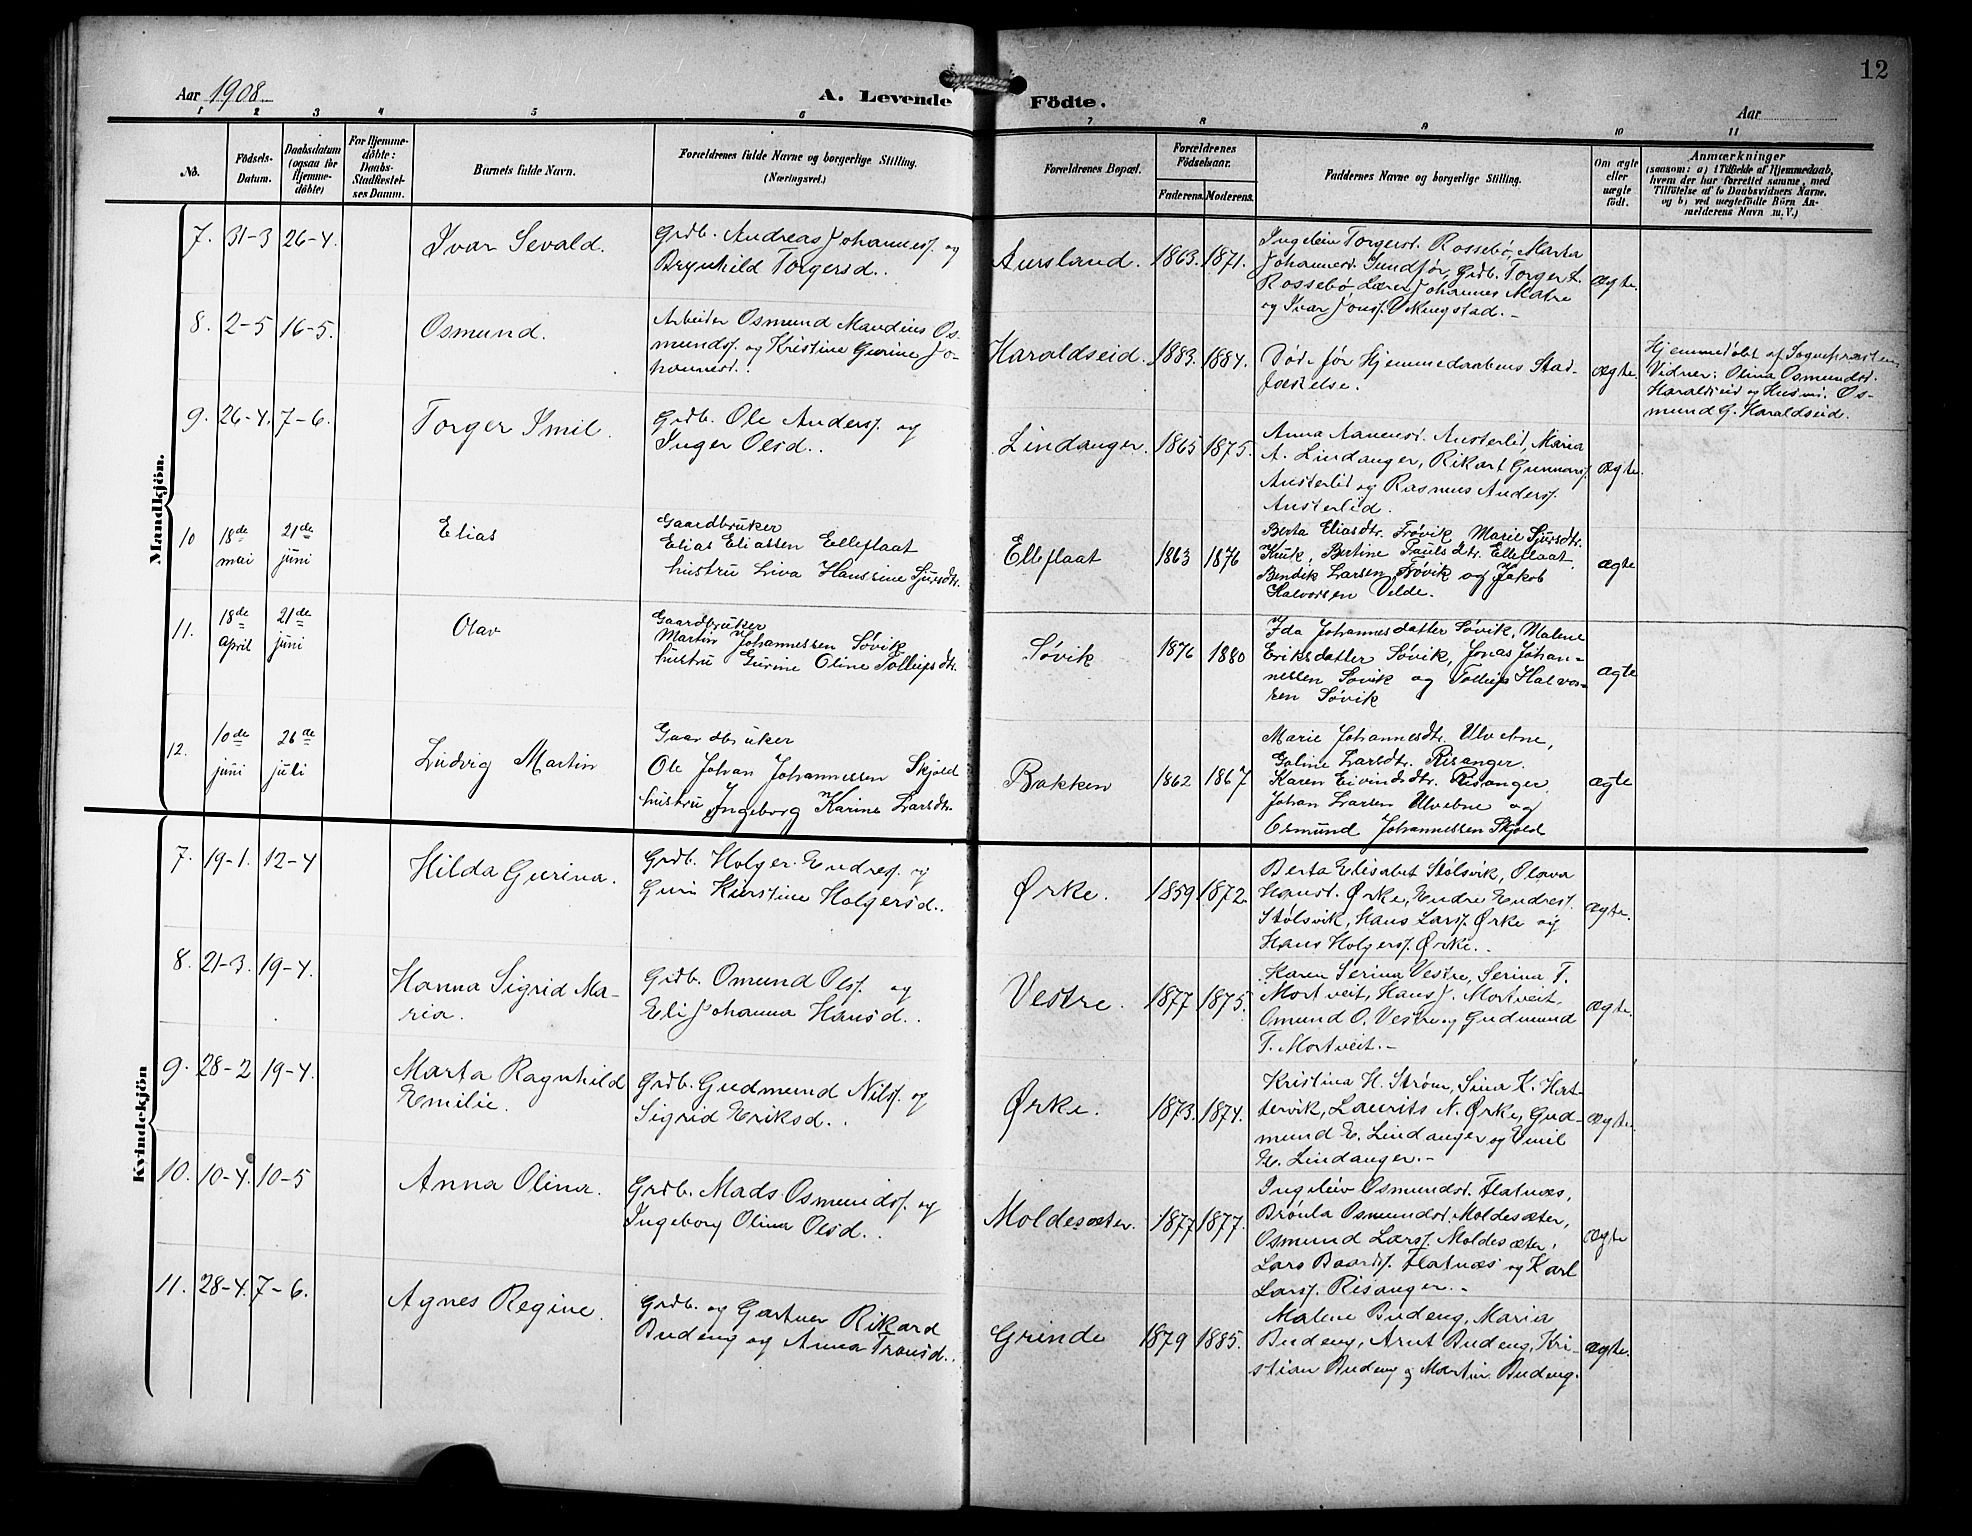 12
Aar 1908.
A. Levende Födte.
Aar
1 2 3 4 5 6 7 8 9 10 11
No.
Födsels-
Datum.
Daabsdatum
(ogsaa for
Hjemme-
döbte)
For Hjemme-
döbte:
Daabs-
Stadfæstel-
ses Datum.
Barnets fulde Navn.
Forældrenes fulde Navne og borgerlige Stilling.
(Næringsvei.)
Forældrenes Bopæl.
Forældrenes
Födselsaar.
Faderens. Moderens.
Faddernes Navne og borgerlige Stilling.
Om ægte
eller
uægte
födt.
Anmærkninger
(saasom: a) i Tilfælde af Hjemmedaab,
hvem der har forrettet samme, med
Tilföielse af to Daabsvidners Navne.
og b) ved uægtefödte Börn An-
melderens Navn m. V.)
Mandkjön.
7. 31-3 26-4. Ivar Sevald.
Grdb. Andreas Johanness. og
Brynhild Torgersd..
Aursland. 1863. 1871.
Ingeleiv Torgersd. Rossebø, Marta
Johannesd. Sundför, Grdb. Torger L.
Rossebø Lærer Johannes Matre
og Ivar Jonss. Økingstad.-
ægte.
8. 2-5 16-5. Osmund.
Arbeider Osmund Mandius Os-
munds. og Kristine Gurine Jo-
hannesd..
Haraldseid. 1883. 1884.
Död før Hjemmedaabens Stad-
fæstelse.
ægte.
Hjemmedøbt af Sognepræsten
Vidner: Olina Osmundsd.
Haraldseid og Husm. Os-
mund G. Haraldseid.
9. 26-4. 7-6. Torger Emil.
Grdb. Ole Anderss. og
Inger Olsd..
Lindanger. 1865 1875.
Anna Aanensd. Austerlid, Maria
A. Lindanger, Rikart Gunnars.
Austerlid og Rasmus Anders.
Austerlid.
ægte.
10 18de
mai
21de
juni
Elias
Gaardbruker
Elias Eliassen Elleflaat
hustru Liva Hanssine Sjursdtr.
Elleflaat 1863 1876
Berta Eliasdtr. Frøvik Marie Sjursdtr.
Kruk, Bertine Paulsdtr. Elleflaat,
Bendik Larsen Frøvik og Jakob
Halvorsen Velde.
ægte
11. 18de
april
21de
juni
Olav
Gaardbruker
Martin Johannessen Søvik
hustru Gurine Oline Tollefsdtr.
Søvik 1876 1880
Ida Johannesdatter Søvik, Malene
Eriksdatter Søvik, Jonas Johan-
nessen Søvik og Tollefs Halvor-
sen Søvik
ægte
12. 10de
juni
26de
juli
Ludvig Martin
Gaardbruker
Ole Johan Johannessen Skjold
hustru Ingeborg Karine Larsdtr.
Bakken 1862 1867
Marie Johannesdtr. Ulvebne,
Goline Larsdtr. Risanger,
Karen Eivindsdtr. Risanger
Johan Larsen Ulvebne og
Osmund Johannessen Skjold
ægte
Kvindekjön
7. 19-1. 12-4 Hilda Gurina.
Grdb. Holger Endress. og
Guri Kirstine Holgersd..
Ørke. 1859 1872.
Berta Elisabet Stølsvik, Olava
Hansd. Ørke, Endre Endress.
Stølsvik, Hans Larss. Ørke og
Hans Holgerss. Ørke.-
ægte.
8. 21-3. 19-4. Hanna Sigrid Ma-
ria.
Grdb. Omund Olss. og
Eli Johanna Hansd..
Vestre. 1877 1875.
Karen Serina Vestre, Serina T.
Mortveit, Hans J. Mortveit,
Omund O. Vestre og Gudmund
T. Mortveit.-
ægte.
9. 28-2 19-4. Marta Ragnhild
Emilie.
Grdb. Gudmund Nilss. og
Sigrid Eriksd..
Ørke. 1873. 1874.
Kristina H. Strøm, Sina K. Hat-
tervik, Laurits N. Ørke, Gud-
mund E. Lindanger og Emil
E. Lindanger.-
ægte.
10. 10-4. 10-5 Anna Olina.
Grdb. Mads Osmunds. og
Ingeborg Olina Olsd..
Moldesæter. 1877 1877.
Ingeleiv Osmundsd. Flatnæs,
Brønla Osmundsd. Moldesæter,
Osmund Larss. Moldesæter,
Lars Baards. Flatnæs og Karl
Larss. Risanger.-
ægte
11. 28-4. 7-6. Agnes Regine.
Grdb. og Gartner Rikard
Budeng og Anna Tronsd..
Grinde 1879 1885.
Malene Budeng, Maria
Budeng, Arnt Budeng, Kri-
stian Budeng og Martin Budeng.
ægte.